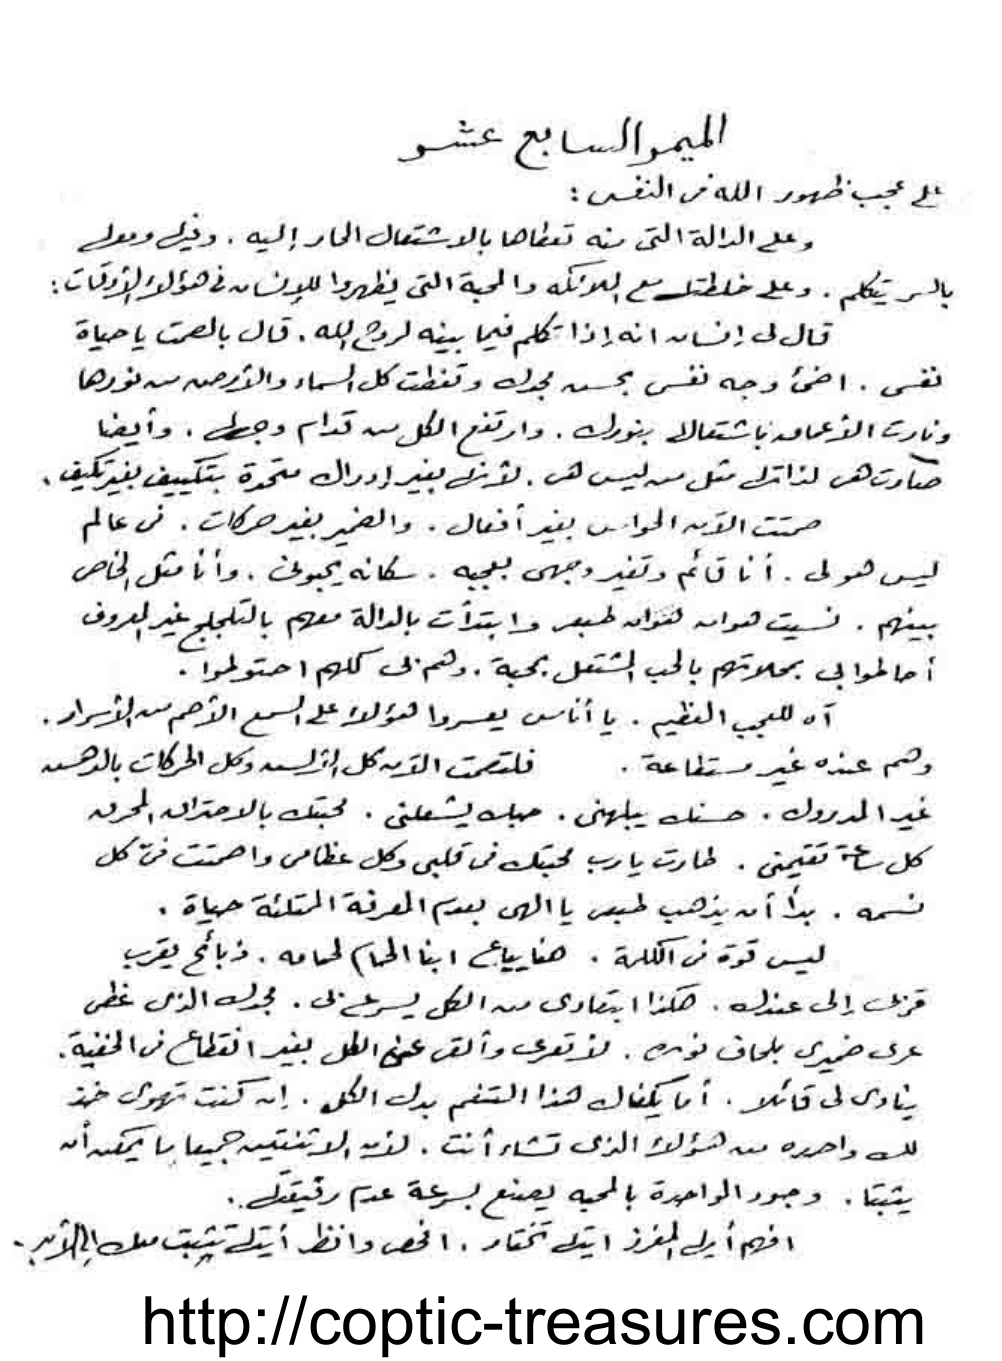 الميمر السابع عشر
على عجب ظهور الله فى النفس :
وعلى الدالة التى منه تعطاها بالاشتعال الحار إليه .
بالسر يتكلم . وعلى خلطتك مع الملائكه والمحبة التى يظهروا للإنسان فى هؤلاء الأوقات :
قال لى إنسان انه إذا تكلم فيما بينه لروح الله . قال بالصمت يا حياة
نفسى . اضئ وجه نفسى بحسن مجدك وتغطت كل السماء والأرض من نورها
ونارت الأعماق باشتعالك بنورك . وارتفع الكل من قدام وجهك . وأيضا
صارت هى لذاتك مثل من ليس هى . لأنك بغير إدراك متحدة بتكييف بغير تكيف .
صمتت الآن الحواس بغير أفعال . والضمير بغير حركات . فى عالم
ليس هو لى . أنا قائم وتغير وجهى بعجبه . سكانه يحبونى . وأنا مثل الخاص
بينهم . نسيت هوان طبعى وابتدأت بالدالة معهم بالتلجلج غير المعروف
أحاطوا بى بمحلاتهم بالحب المشتعل بمحبة . وهم بى كلهم احتوطوا .
آه للعجب العظيم . يا أناس يعسروا هؤلاء على السمع الأصم من الأسرار .
وهم عنده غير مستطاعة . فلتصمت الآن كل الألسن وكل الحركات بالدهش
غير المدروك . حسنك يبلهنى . حبك يشعلنى . محبتك بالاحتراق المحرق
كل ساعة تقيمنى . طارت يارب محبتك فى قلبى وكل عظامى واصمتت فىّ كل
نسمه . بدأ أن يذهب طبعى يا الهى بعدم المعرفة الممتلئة حياة .
ليس قوة فى الكلمة . هنا يباع ابنا الحمام لحمامه . ذبائح يقرب
قربك إلى عندك . هكذا ابتعادى من الكل يسرع بى . مجدك الذى غطى
عرى ضميرى بلحاف نوره . لا تعرى وألق عنى الكل بغير انقطاع فى الخفية .
ينادى لى قائلا . أما يكفاك هذا التنعم بدل الكل . إن كنت تهوى خذ
لك واحده من هؤلاء الذى تشاء أنت . لأن الاثنتين جميعا ما يمكن أن
يثبتا . وجود الواحدة بالمحبه يصنع بسرعة عدم رفيقتك .
افهم أيها المفرز ايتك تختار . افحص وانظر أيتك تثبت معك إلى الأبد .
http://coptic-treasures.com